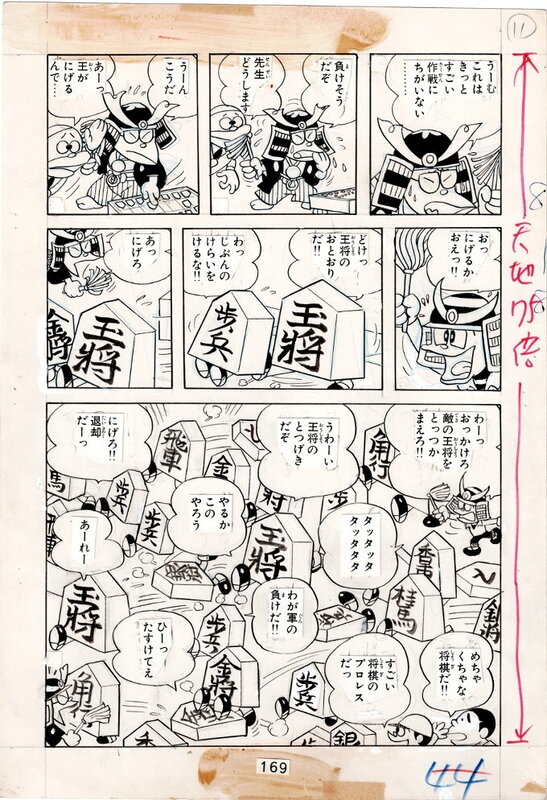 11
うーむ
これは
きっと
すごい
作戦に
ちがいない
………
負けそう
だぞ
先生
どうします
うーん
こうだ
あーっ
王が
にげる
んで……
おっ
にげるか
おえっ!!
どけっ
王将の
おとおり
だ!!
わっ
じぶんの
けらいを
けるな!!
王将
歩兵
あっ
にげろ
王将
金将
わーっ
おっかけろ
敵の王将を
とっつか
まえろ!!
うわーい
王将の
とつげき
だぞ
にげろ!!
退却
だーっ
角行
飛車
金
歩兵
歩兵
馬
やるか
この
やろう
タッタッタ
タッタタタ
あーれー
王将
王将
香車
桂馬
わが軍の
負けだ!!
ひーっ
たすけてえ
歩兵
金将
歩兵
角行
すごい
将棋の
プロレス
だっ
めちゃ
くちゃな
将棋だ!!
銀
香
169
44
天地75倍